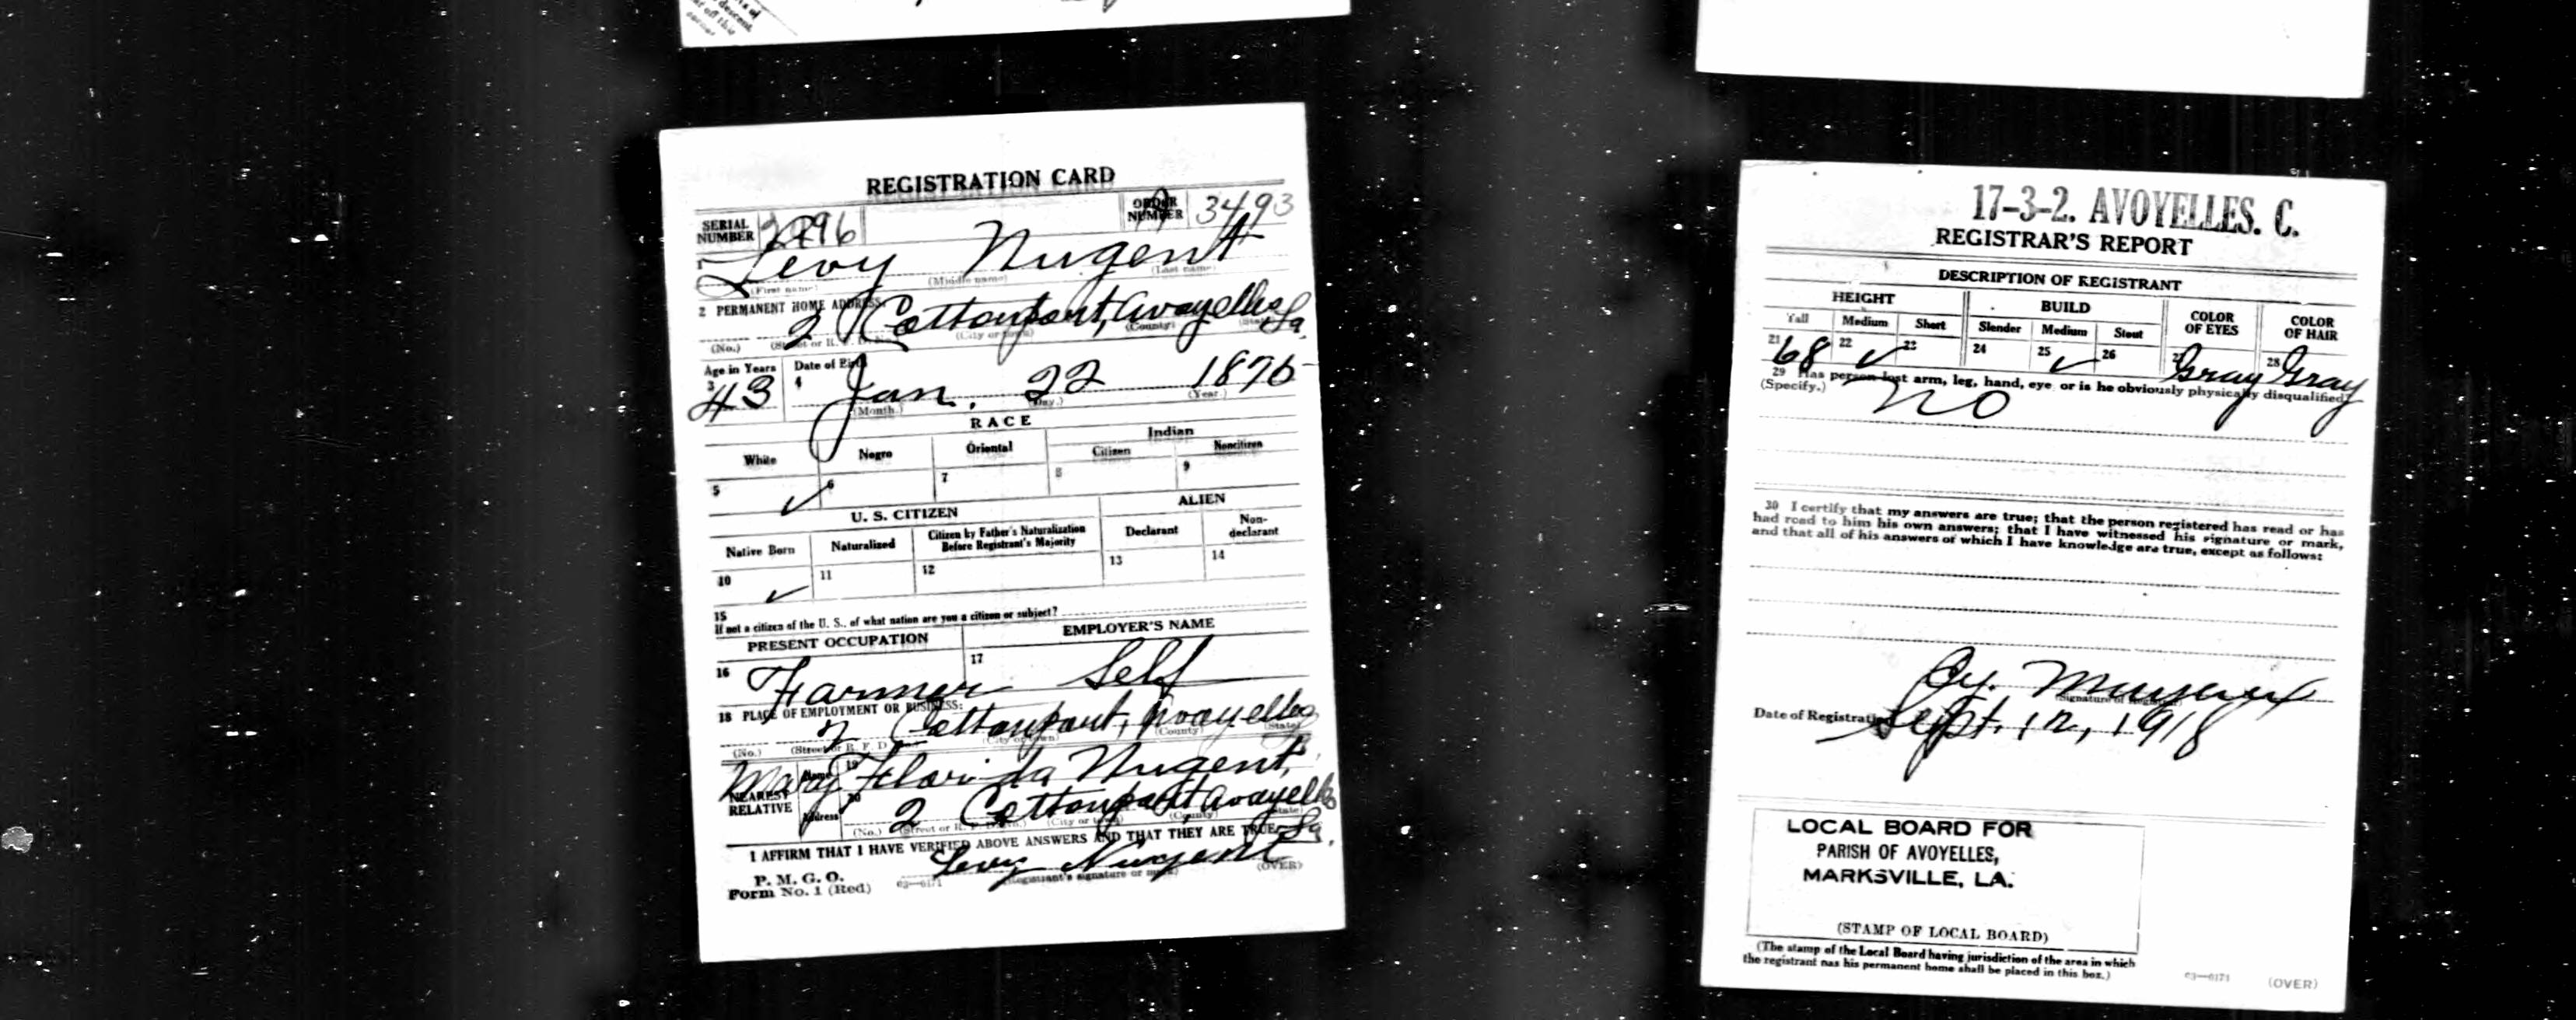 REGISTRATION CARD
SERIAL NUMBER 2796 ORDER NUMBER A 3493
1 Levy Nugent
(First name) (Middle name) (Last name)
2 PERMANENT HOME ADDRESS:
2 Cottonport, Avoyelles La.
(No.) (Street or R. F. D. No.) (City or town) (County) (State)
Age in Years Date of Birth
3 43 4 Jan. 22 1875
(Month.) (Day.) (Year.)
RACE
White Negro Oriental Indian
Citizen Noncitizen
5 ✓ 6 7 8 9
U. S. CITIZEN ALIEN
Native Born Naturalized Citizen by Father's Naturalization Before Registrant's Majority Declarant Non-declarant
10 ✓ 11 12 13 14
15
If not a citizen of the U. S., of what nation are you a citizen or subject?
PRESENT OCCUPATION EMPLOYER'S NAME
16 Farmer 17 Self
18 PLACE OF EMPLOYMENT OR BUSINESS:
2 Cottonport, Avoyelles
(No.) (Street or R. F. D. No.) (City or town) (County) (State)
NEAREST RELATIVE Name 19 Mary Florida Nugent,
Address 20 2 Cottonport Avoyelles La.
(No.) (Street or R. F. D. No.) (City or town) (County) (State)
I AFFIRM THAT I HAVE VERIFIED ABOVE ANSWERS AND THAT THEY ARE TRUE
P. M. G. O.
Form No. 1 (Red) 03—6171 Levy Nugent
(Registrant's signature or mark) (OVER)
17-3-2. AVOYELLES. C.
REGISTRAR'S REPORT
DESCRIPTION OF REGISTRANT
HEIGHT BUILD COLOR OF EYES COLOR OF HAIR
Tall Medium Short Slender Medium Stout
21 68 22 ✓ 23 24 25 ✓ 26 27 Gray 28 Gray
29 Has person lost arm, leg, hand, eye, or is he obviously physically disqualified?
(Specify.) no
30 I certify that my answers are true; that the person registered has read or has
had read to him his own answers; that I have witnessed his signature or mark,
and that all of his answers of which I have knowledge are true, except as follows:
(Signature of Registrar)
Date of Registration Sept. 12, 1918
LOCAL BOARD FOR
PARISH OF AVOYELLES,
MARKSVILLE, LA.
(STAMP OF LOCAL BOARD)
(The stamp of the Local Board having jurisdiction of the area in which
the registrant has his permanent home shall be placed in this box.)
03—6171 (OVER)